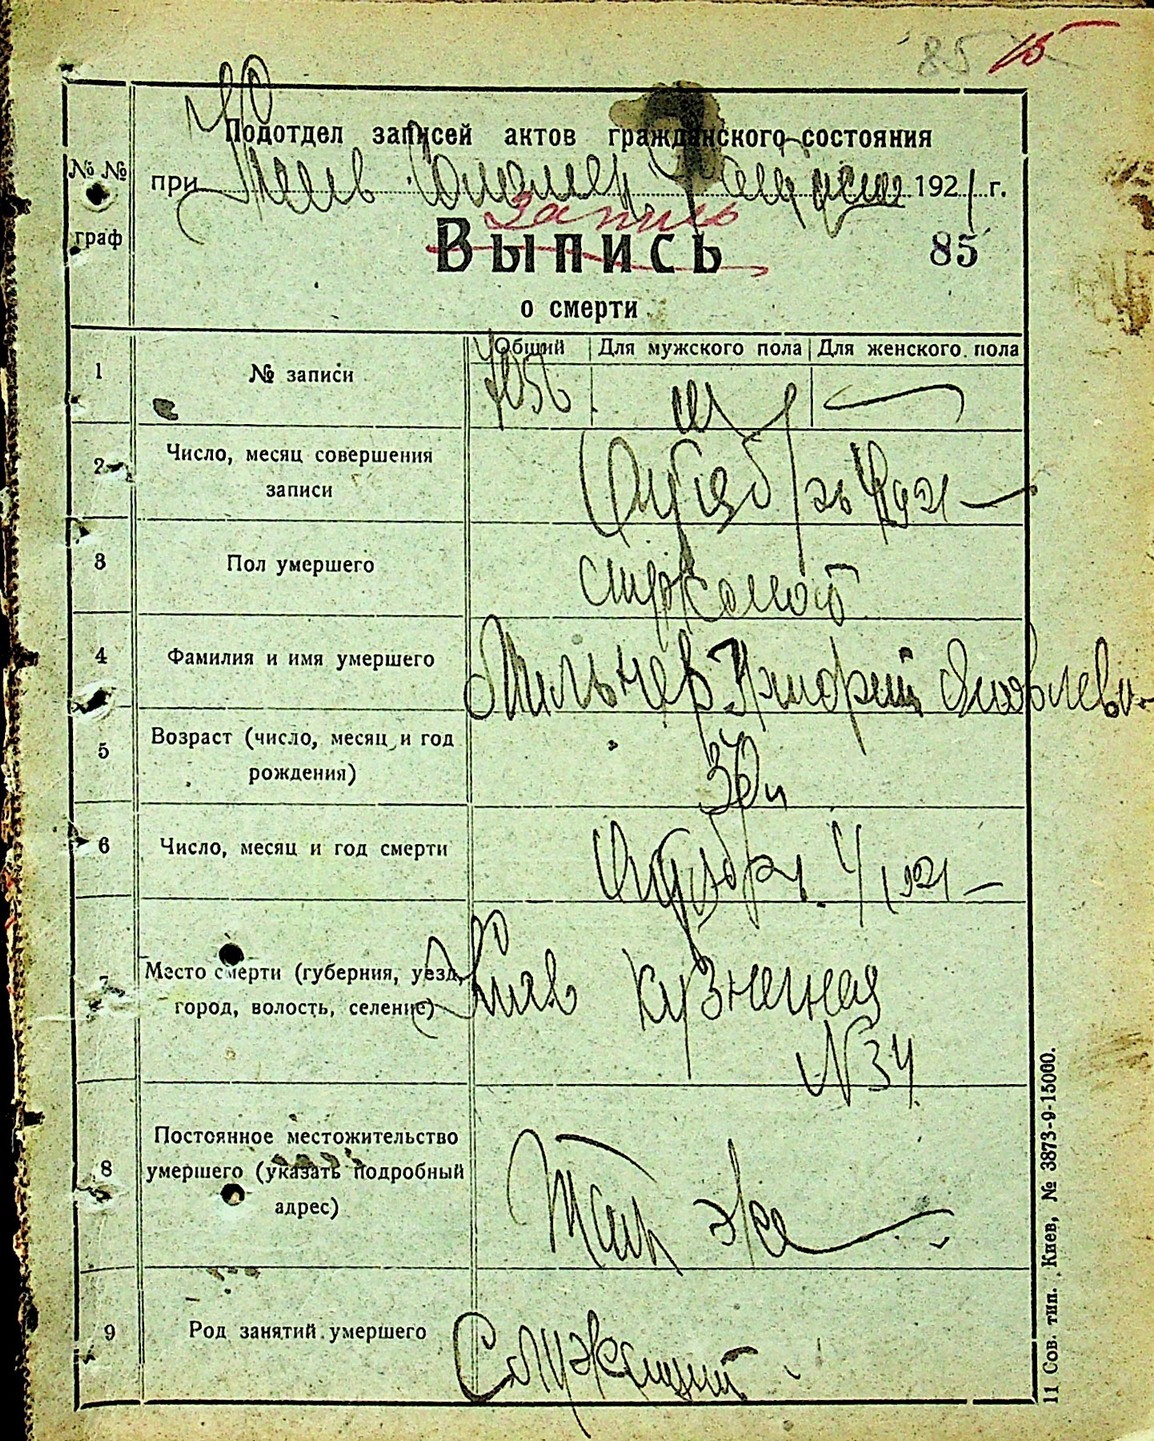 85 15
Подотдел записей актов гражданского состояния
при Киев 1921 г.
Запись
№№ граф
Выпись 85
о смерти
Общий Для мужского пола Для женского пола
1 № записи 7056
2 Число, месяц совершения
записи Октябрь 4 1921
3 Пол умершего мужской
4 Фамилия и имя умершего Мильнер Яковлев
5 Возраст (число, месяц и год
рождения) 30
6 Число, месяц и год смерти Октября 4 1921
7 Место смерти (губерния, уезд, Киев Кузнечная
город, волость, селение)
N 34
8 Постоянное местожительство
умершего (указать подробный Там же
адрес)
9 Род занятий умершего Служащий
11 Сов. тип. Киев, № 3873-9-15000.